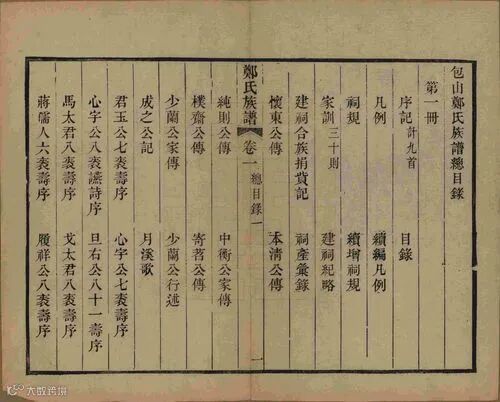 包山鄭氏族譜總目錄
第一冊
序記 計九首 目錄
凡例 續編凡例
祠規 續增祠規
家訓 三十則 建祠紀略
建祠合族捐貲記 祠產彙錄
懷東公傳 本清公傳
鄭氏族譜 卷一 總目錄 一
純則公傳 中衡公家傳
樸齋公傳 寄茗公傳
少蘭公家傳 少蘭公行述
成之公記 月溪歌
君玉公七袠壽序 心字公七袠壽序
心字公八袠讌詩序 旦右公八十一壽序
馬太君八袠壽序 戈太君八袠壽序
蔣孺人六袠壽序 履祥公八袠壽序
一
大数跨境